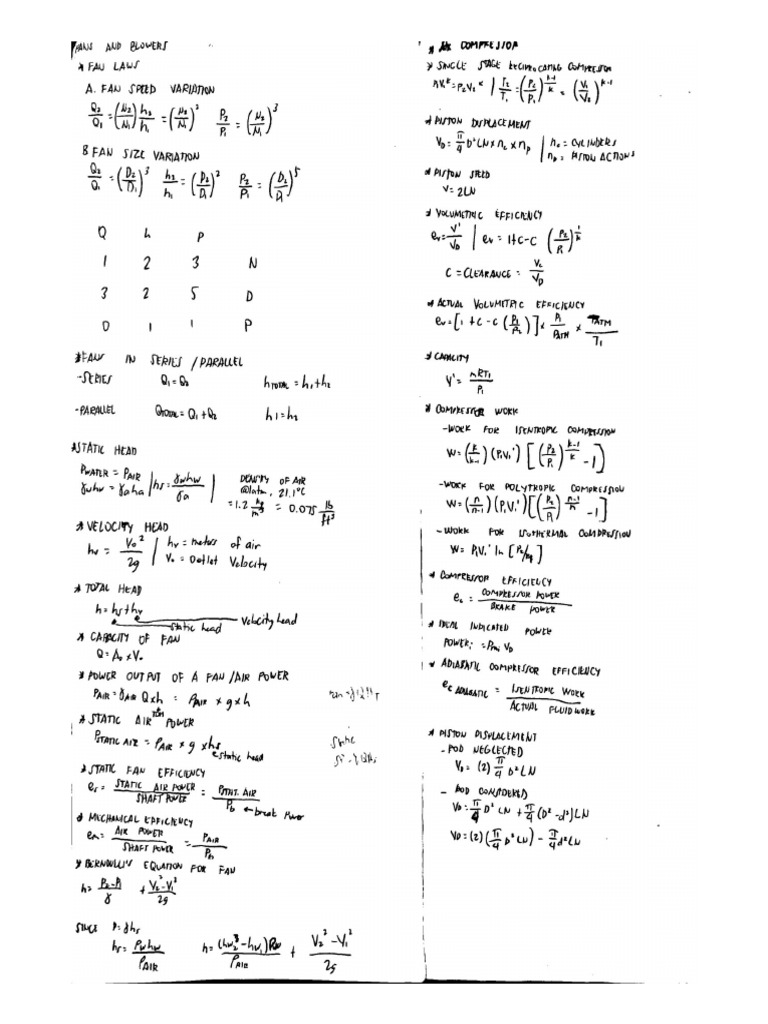 FANS AND BLOWERS
* FAN LAWS
A. FAN SPEED VARIATION
Q2/Q1 = (N2/N1) h2/h1 = (N2/N1)^2 P2/P1 = (N2/N1)^3
B FAN SIZE VARIATION
Q2/Q1 = (D2/D1)^3 h2/h1 = (D2/D1)^2 P2/P1 = (D2/D1)^5
Q h P
1 2 3 N
3 2 5 D
0 1 1 P
* FANS IN SERIES / PARALLEL
- SERIES Q1 = Q2 hTOTAL = h1 + h2
- PARALLEL QTOTAL = Q1 + Q2 h1 = h2
* STATIC HEAD
PWATER = PAIR
γwhw = γaha | hs = γwhw/γa | DENSITY OF AIR
@1atm, 21.1°C
= 1.2 kg/m³ = 0.075 lb/ft³
* VELOCITY HEAD
hv = Vo²/2g | hv = meters of air
Vo = outlet Velocity
* TOTAL HEAD
h = hs + hv
Velocity head
static head
* CAPACITY OF FAN
Q = Ao x Vo
* POWER OUTPUT OF A FAN / AIR POWER
PAIR = γAIR Q x h = PAIR x g x h
* STATIC AIR POWER
PSTATIC AIR = PAIR x g x hs
static head
static
* STATIC FAN EFFICIENCY
es = STATIC AIR POWER/SHAFT POWER = PSTAT. AIR/Pb ← break Power
* MECHANICAL EFFICIENCY
em = AIR POWER/SHAFT POWER = PAIR/Pb
* BERNOULLI EQUATION FOR FAN
h = P2-P1/γ + V2²-V1²/2g
SINCE P = γhs
hs = Pwhw/PAIR h = (hw2-hw1)Pw/PAIR + V2²-V1²/2g
* AIR COMPRESSOR
* SINGLE STAGE RECIPROCATING COMPRESSOR
P1V1^k = P2V2^k | T2/T1 = (P2/P1)^(k-1/k) = (V1/V2)^(k-1)
* PISTON DISPLACEMENT
VD = π/4 D²LN x nc x np | nc = CYLINDERS
np = PISTON ACTIONS
* PISTON SPEED
V = 2LN
* VOLUMETRIC EFFICIENCY
ev = V'/VD | ev = 1+C-C (P2/P1)^(1/k)
C = CLEARANCE = Vc/VD
* ACTUAL VOLUMETRIC EFFICIENCY
ev = [1 + C - C (P1/P2)] x P1/PATM x TATM/T1
* CAPACITY
V' = mRT1/P1
* COMPRESSOR WORK
- WORK FOR ISENTROPIC COMPRESSION
W = (k/k-1) (P1V1') [(P2/P1)^(k-1/k) - 1]
- WORK FOR POLYTROPIC COMPRESSION
W = (n/n-1) (P1V1') [(P2/P1)^(n-1/n) - 1]
- WORK FOR ISOTHERMAL COMPRESSION
W = P1V1' ln [P2/P1]
* COMPRESSOR EFFICIENCY
ec = COMPRESSOR POWER/BRAKE POWER
* IDEAL INDICATED POWER
POWERi = Pmi VD
* ADIABATIC COMPRESSOR EFFICIENCY
ec ADIABATIC = ISENTROPIC WORK/ACTUAL FLUID WORK
* PISTON DISPLACEMENT
- ROD NEGLECTED
VD = (2) π/4 D² LN
- ROD CONSIDERED
VD = π/4 D² LN + π/4 (D² - d²) LN
VD = (2)(π/4 D² LN) - π/4 d² LN